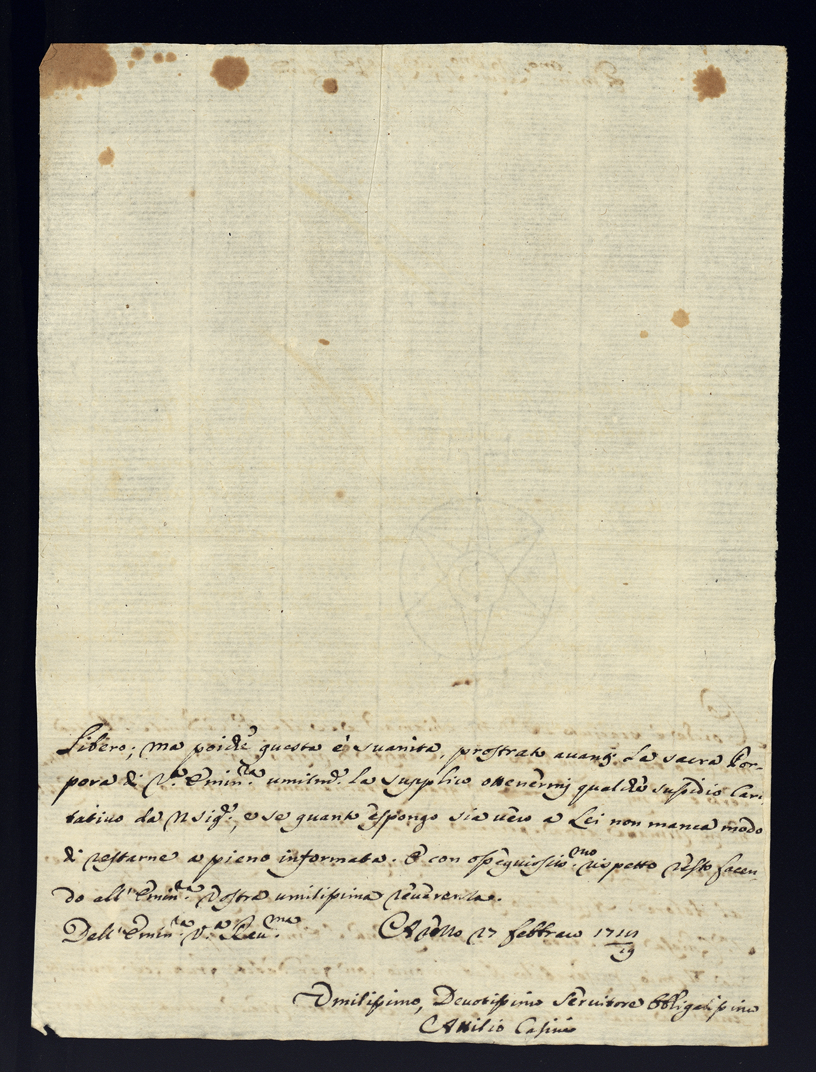 libero; ma poiché questa è svanita, prostrato avanti la sacra Por-
pora di V.ª Emin.za umilm.e la supplico ottenermi qualche susidio Cari
tativo da N Sig.e, e se quanto espongo sia vero a Lei non manca modo
di restarne a pieno informata. E con ossequiosiss.mo rispetto resto facen-
do all'Emin.za Vostra umilissima reverenza.
Dell'Emin.za V.ª Rev.ma 17 febbraio 17
19
Umilissimo, Devotissimo Servitore Obbligatissimo
Attilio Casini